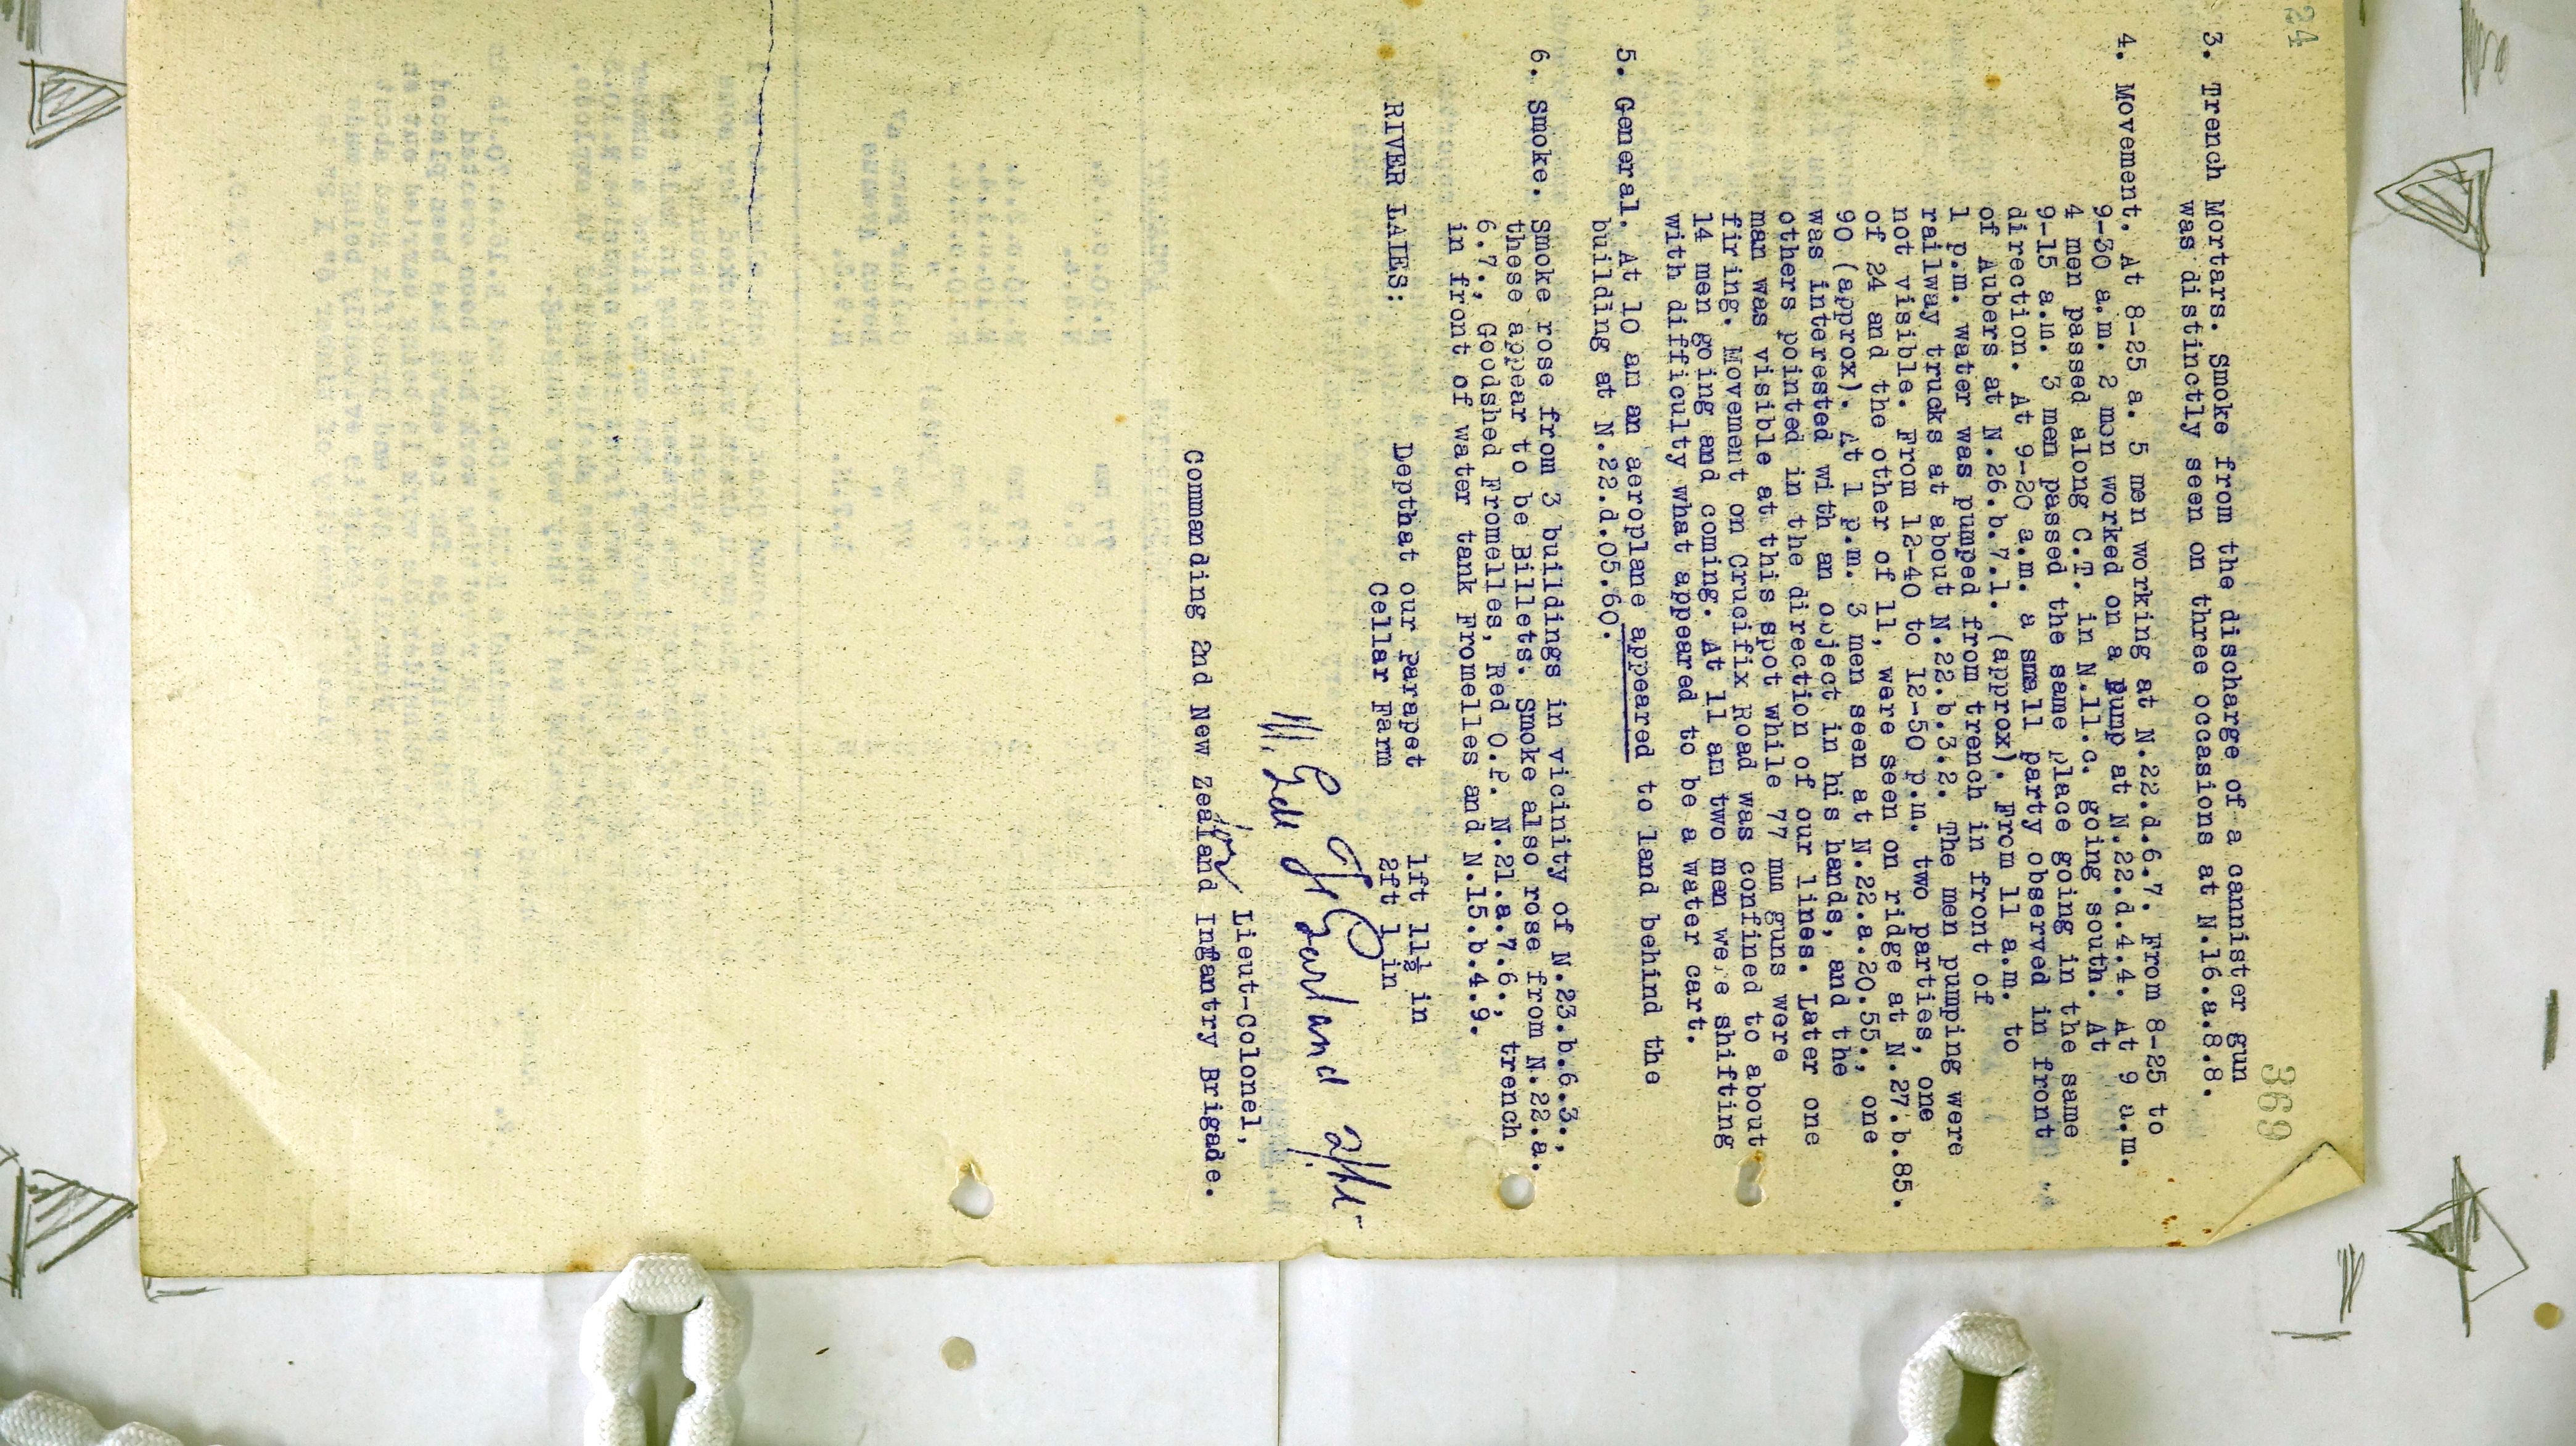 24
369
3. Trench Mortars. Smoke from the discharge of a cannister gun
was distinctly seen on three occasions at N.16.a.8.8.
4. Movement. At 8-25 a. 5 men working at N.22.d.6.7. From 8-25 to
9-30 a.m. 2 men worked on a pump at N.22.d.4.4. At 9 a.m.
4 men passed along C.T. in N.11.c. going south. At
9-15 a.m. 3 men passed the same place going in the same
direction. At 9-20 a.m. a small party observed in front
of Aubers at N.26.b.7.1. (approx). From 11 a.m. to
1 p.m. water was pumped from trench in front of
railway trucks at about N.22.b.3.2. The men pumping were
not visible. From 12-40 to 12-50 p.m. two parties, one
of 24 and the other of 11, were seen on ridge at N.27.b.85.
90 (approx). At 1 p.m. 3 men seen at N.22.a.20.55., one
was interested with an object in his hands, and the
others pointed in the direction of our lines. Later one
man was visible at this spot while 77 mm guns were
firing. Movement on Crucifix Road was confined to about
14 men going and coming. At 11 am two men were shifting
with difficulty what appeared to be a water cart.
5. General. At 10 am an aeroplane appeared to land behind the
building at N.22.d.05.60.
6. Smoke. Smoke rose from 3 buildings in vicinity of N.23.b.6.3.,
these appear to be Billets. Smoke also rose from N.22.a.
6.7., Goodshed Fromelles, Red O.P. N.21.a.7.6., trench
in front of water tank Fromelles and N.15.b.4.9.
RIVER LAIES: Depthat our parapet 1ft 11½ in
Cellar Farm 2ft 1 in
Garland
for Lieut-Colonel,
Commanding 2nd New Zealand Infantry Brigade.